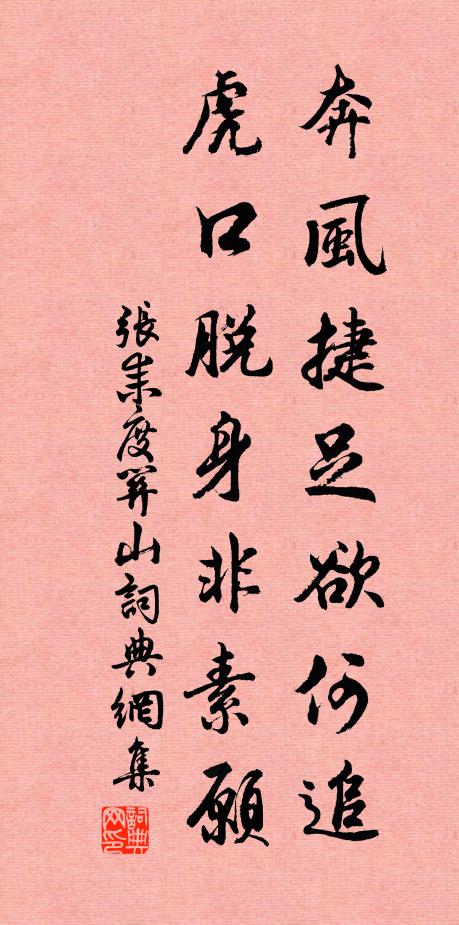 奔風捷足欲何追
虎口脫身非素願
張耒度關山詞典網集
詞典网印